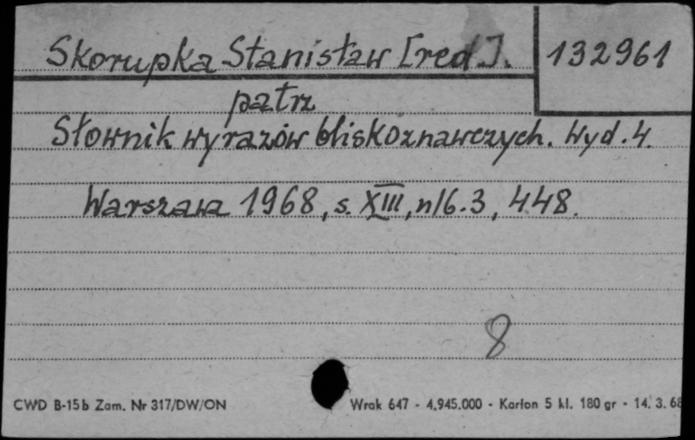 Skorupka Stanisław [red.]. 132961
patrz
Słownik wyrazów bliskoznawczych. Wyd. 4.
Warszawa 1968, s. XIII, nlb. 3, 448.
8
CWD B-15b Zam. Nr 317/DW/ON Wrak 647 - 4.945.000 - Karton 5 kl. 180 gr - 14. 3. 68